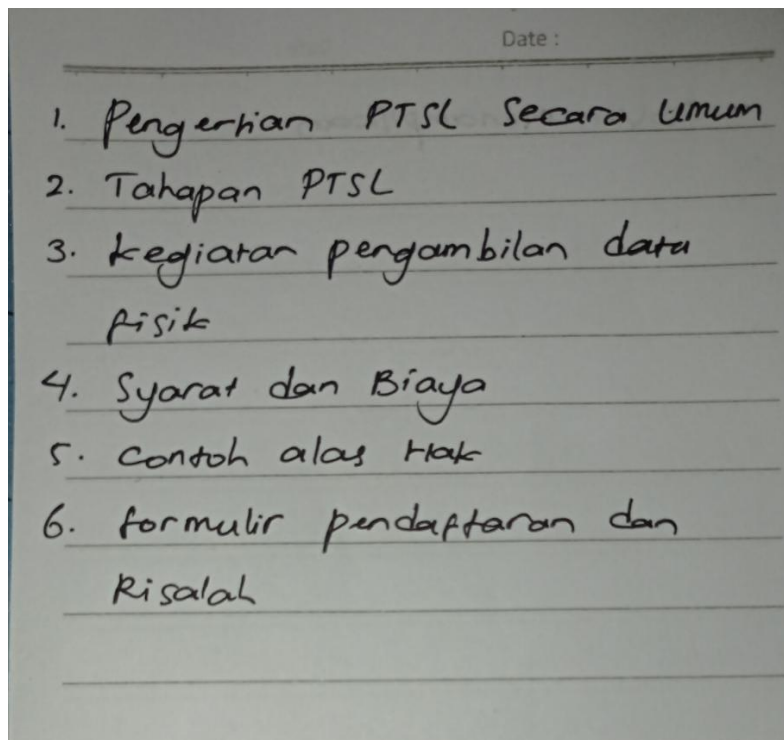 Date :
1. Pengertian PTSL Secara Umum
2. Tahapan PTSL
3. kegiatan pengambilan data
fisik
4. Syarat dan Biaya
5. Contoh alas Hak
6. formulir pendaftaran dan
Risalah